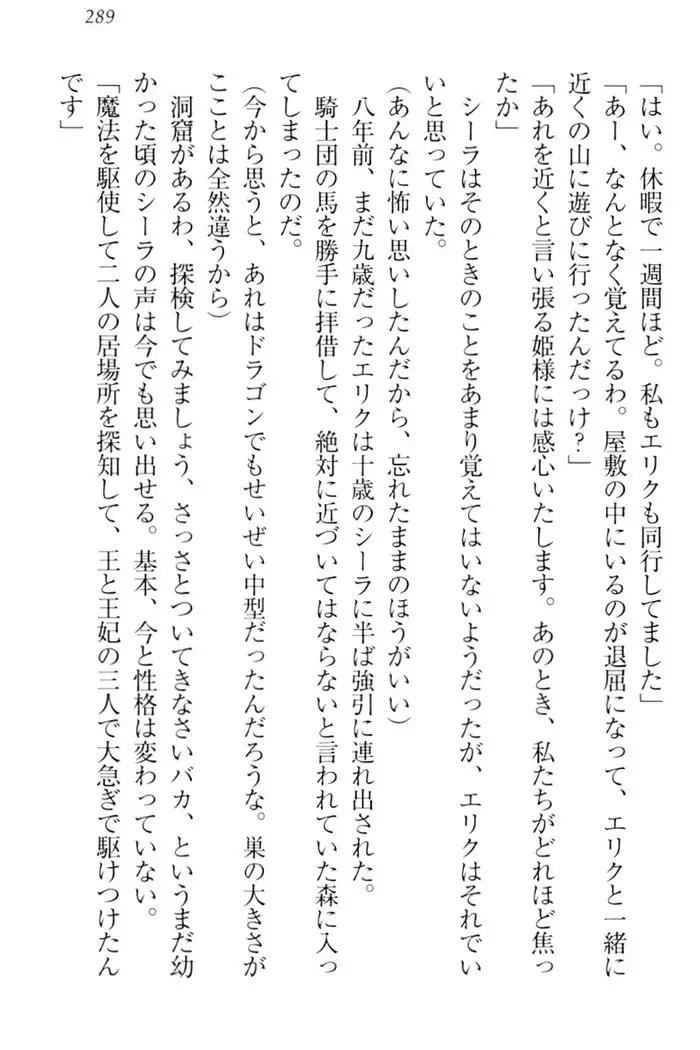 289
「はい。休暇で一週間ほど。私もエリクも同行してました」
「あー、なんとなく覚えてるわ。屋敷の中にいるのが退屈になって、エリクと一緒に
近くの山に遊びに行ったんだっけ？」
「あれを近くと言い張る姫様には感心いたします。あのとき、私たちがどれほど焦っ
たか」
シーラはそのときのことをあまり覚えてはいないようだったが、エリクはそれでい
いと思っていた。
（あんなに怖い思いしたんだから、忘れたままのほうがいい）
八年前、まだ九歳だったエリクは十歳のシーラに半ば強引に連れ出された。
騎士団の馬を勝手に拝借して、絶対に近づいてはならないと言われていた森に入っ
てしまったのだ。
（今から思うと、あれはドラゴンでもせいぜい中型だったんだろうな。巣の大きさが
こことは全然違うから）
洞窟があるわ、探検してみましょう、さっさとついてきなさいバカ、というまだ幼
かった頃のシーラの声は今でも思い出せる。基本、今と性格は変わっていない。
「魔法を駆使して二人の居場所を探知して、王と王妃の三人で大急ぎで駆けつけたん
です」